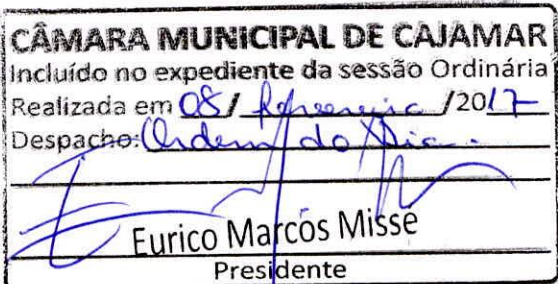 CÂMARA MUNICIPAL DE CAJAMAR
Incluído no expediente da sessão Ordinária
Realizada em 08/ fevereiro /2017
Despacho: Ordem do Dia.
Eurico Marcos Misse
Presidente